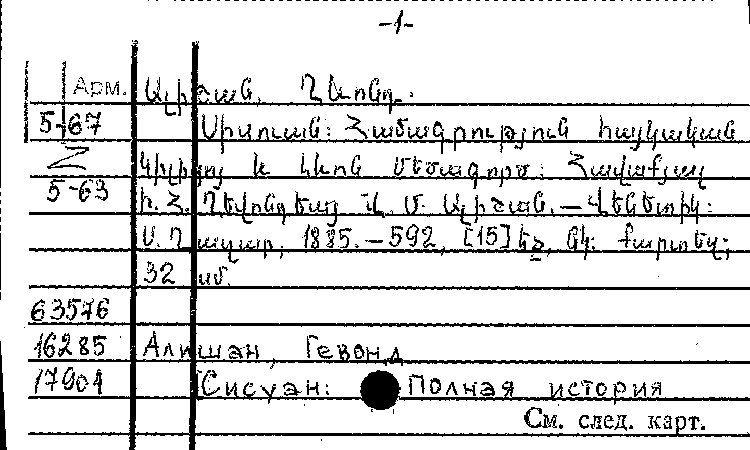 -1-
Арм. Ալիշան, Ղևոնդ.
5-67 Սիսուան: Համագրություն հայկական
Z Կիլիկիոյ և Լևոն Մեծագործ: Հավաքյալ
5-63 ի Հ. Ղևոնդեայ Վ. Մ. Ալիշան. — Վենետիկ:
Ս. Ղազար, 1885. — 592, [15] էջ, նկ. քարտեզ;
32 սմ.
63576
16285 Алишан, Гевонд
17901 [Сисуан: Полная история
См. след. карт.